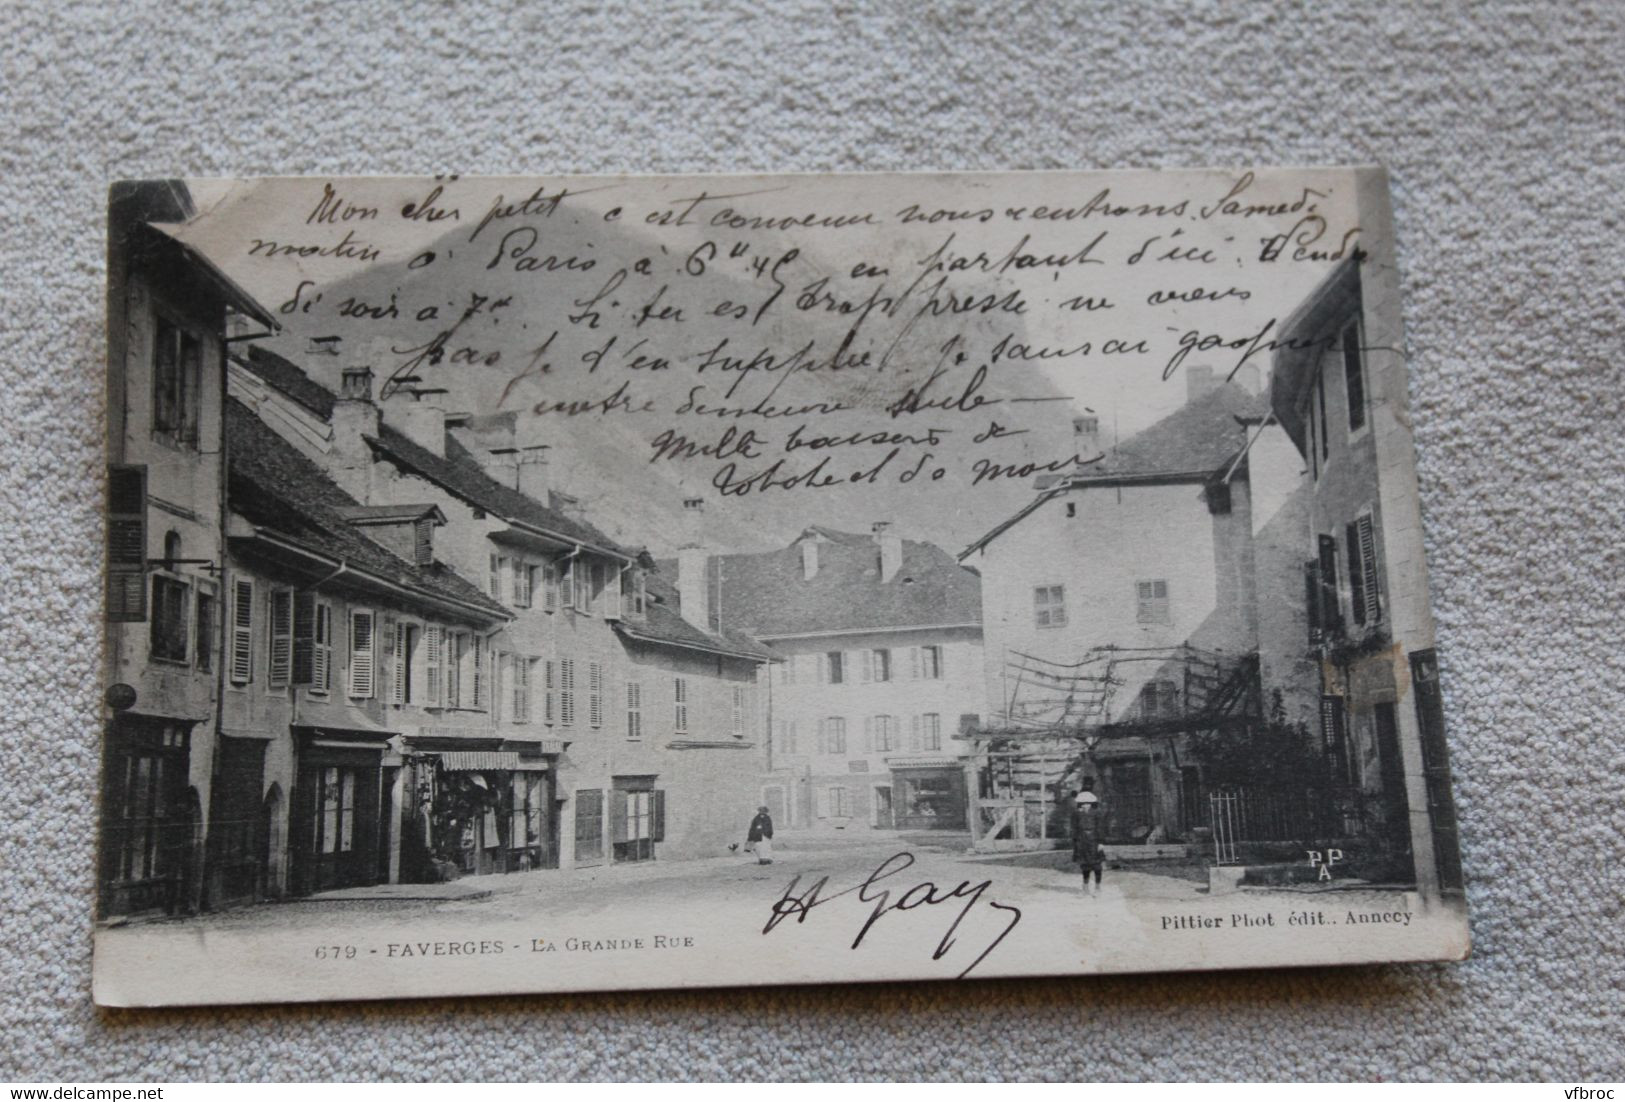 Mon cher petit. c est convenu nous rentrons Samedi
matin à Paris à 6h45 en partant d'ici Vendre
di soir à 7h. Si tu es trop pressé ne viens
pas je t'en supplie. Je saurai gagner
notre demeure seule —
Mille baisers de
Totoche et de moi
H Gay
679 - FAVERGES - LA GRANDE RUE
Pittier Phot édit., Annecy
PPA
www.delcampe.net
vfbroc